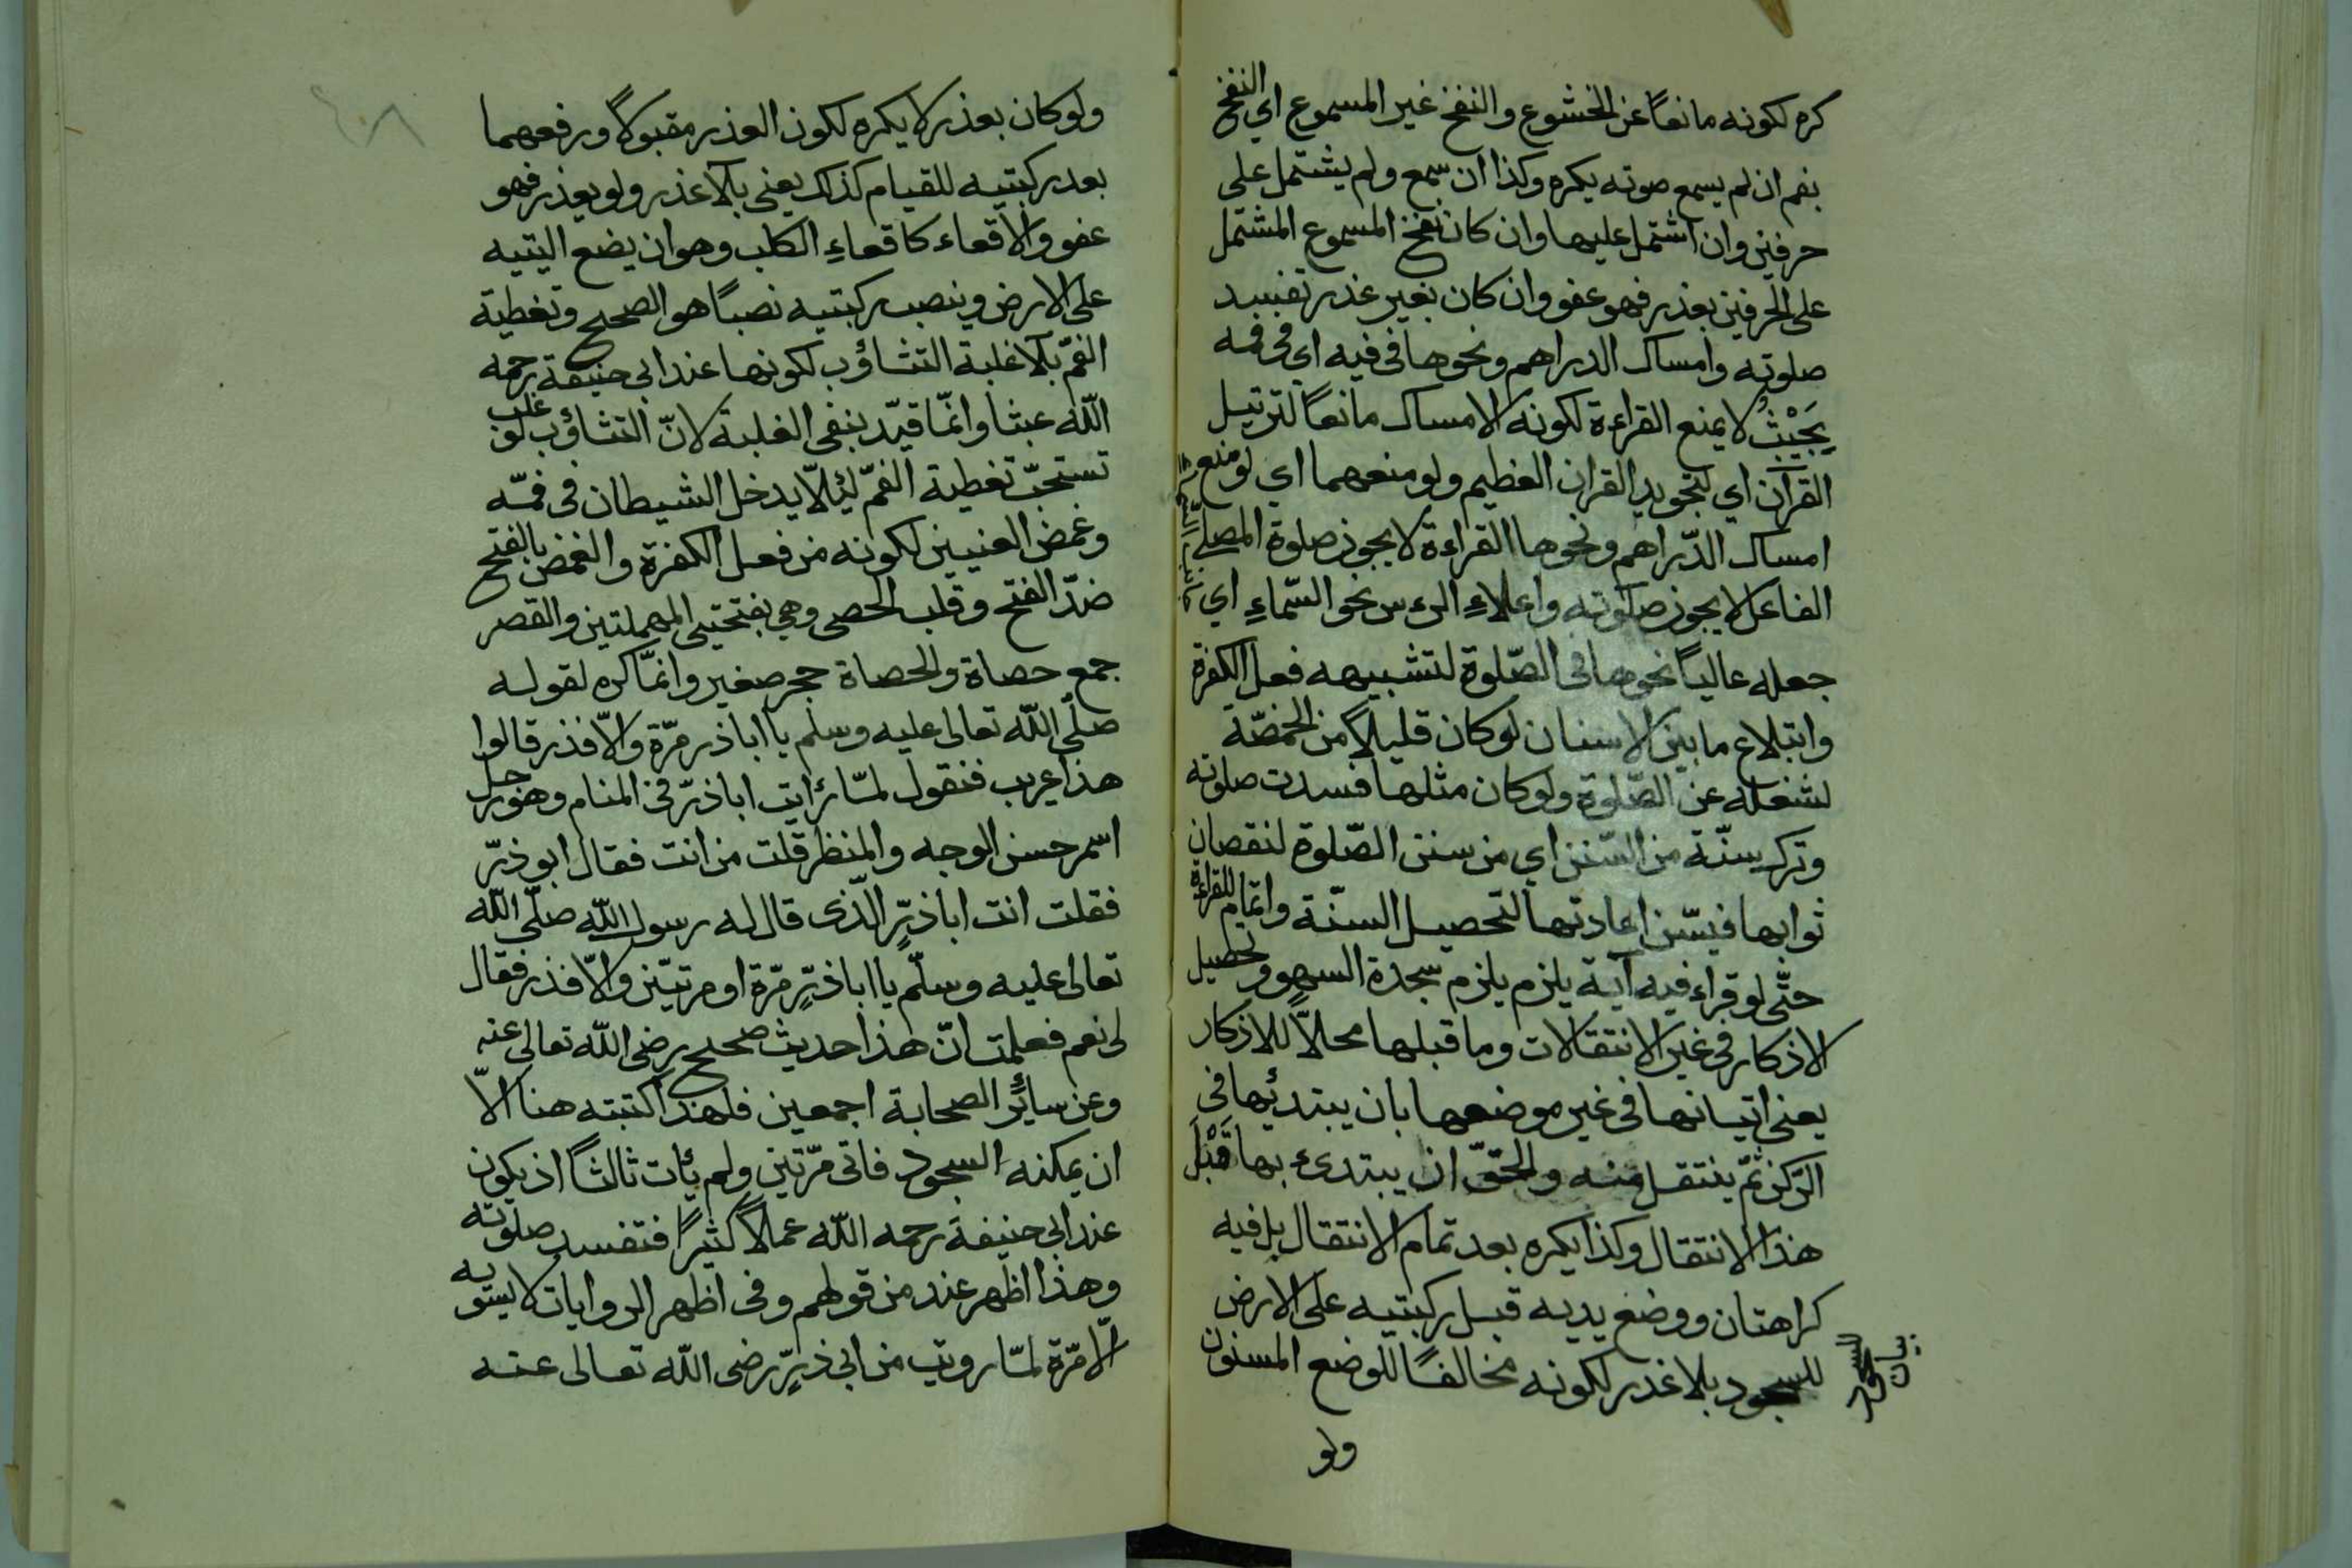 كره لكونه مانعًا عن الخشوع والنفخ غير المسموع اي النفخ
بفم ان لم يسمع صوته يكره وكذا ان سمع ولم يشتمل على
حرفين وان اشتمل عليها وان كان نفخ المسموع المشتمل
على الحرفين بعذر فهو عفو وان كان بغير عذر تفسد
صلوته وامساك الدراهم ونحوها في فيه اي في فمه
بِحَيْثُ لا يمنع القراءة لكونه الامساك مانعًا لترتيل
القرآن اي لتجويد القران العظيم ولو منعهما اي لو منع
امساك الدّراهم ونحوها القراءة لا يجوز صلوة المصلي
الفاعل لا يجوز صلوته واعلاءِ الرءس نحو السّماءِ اي جانب السّماء
جعله عاليًا نحوها في الصّلوة لتشبيهه فعل الكفرة
وابتلاع ما بين الاسنان لو كان قليلاً من الحمصّة
لشغله عن الصّلوة ولو كان مثلها فسدت صلوته
وترك سنّة من السّنن اي من سنن الصّلوة لنقصان
ثوابها فيسّن اعادتها لتحصيل السنّة واتمام القراءة
حتّى لو قراء فيه آية يلزم يلزم سجدة السهو وتحصيل
الاذكار في غير الانتقالات وما قبلها محلاًّ للاذكار
يعنى اتيانها في غير موضعها بان يبتدئها في
الرّكن ثمّ ينتقل منه والحقّ ان يبتدئ بها قَبْلَ
هذا الانتقال وكذا يكره بعد تمام الانتقال بل فيه
كراهتان ووضع يديه قبل ركبتيه على الارض
للسجود بلا عذر لكونه مخالفًا للوضع المسنون
بيان السجود
ولو
٤٠٨
ولو كان بعذر لا يكره لكون العذر مقبولاً ورفعهما
بعد ركبتيه للقيام كذلك يعنى بلا عذر ولو بعذر فهو
عفو والاقعاء كاقعاءِ الكلب وهو ان يضع اليتيه
على الارض وينصب ركبتيه نصبًا هو الصحيح وتغطية
الفمّ بلا غلبة التثاؤب لكونها عند ابى حنيفة رحمه
اللّه عبثا وانّما قيّد بنفى الغلبة لانّ التثاؤب لو غلب
تستحبّ تغطية الفمّ لئلاّ يدخل الشيطان فى فمّه
وغمض العنيين لكونه من فعل الكفرة والغمض بالفتح
ضدّ الفتح وقلب الحصى وهي بفتحتيى المهملتين والقصر
جمع حصاة والحصاة حجر صغير وانّما كره لقوله
صلّى اللّه تعالى عليه وسلم يا اباذر مرّة والاّ فذر قالوا
هذا غريب فنقول لمّا رئايت اباذرّ فى المنام وهو رجل
اسمر حسن الوجه والمنظر قلت من انت فقال ابو ذرّ
فقلت انت اباذرٍّ الّذى قال له رسول اللّه صلّى اللّه
تعالى عليه وسلّم يا اباذرٍّ مرّة او مرتيّن والاّ فذر فقال
لى نعم فعلمت انّ هذا حديث صحيح رضى اللّه تعالى عنه
وعن سائرِ الصحابة اجمعين فلهذا كتبته هنا الاّ
ان يمكنه السجود فاتى مرّتين ولم يئات ثالثاً اذ يكون
عند ابى حنيفة رحمه اللّه عملاً كثيرًا فتفسد صلوته
وهذا اظهر عند من قولهم وفى اظهر الروايات لا يستويه
الاّ مرّة لمّا رويت من ابى ذرٍّ رضى اللّه تعالى عنه